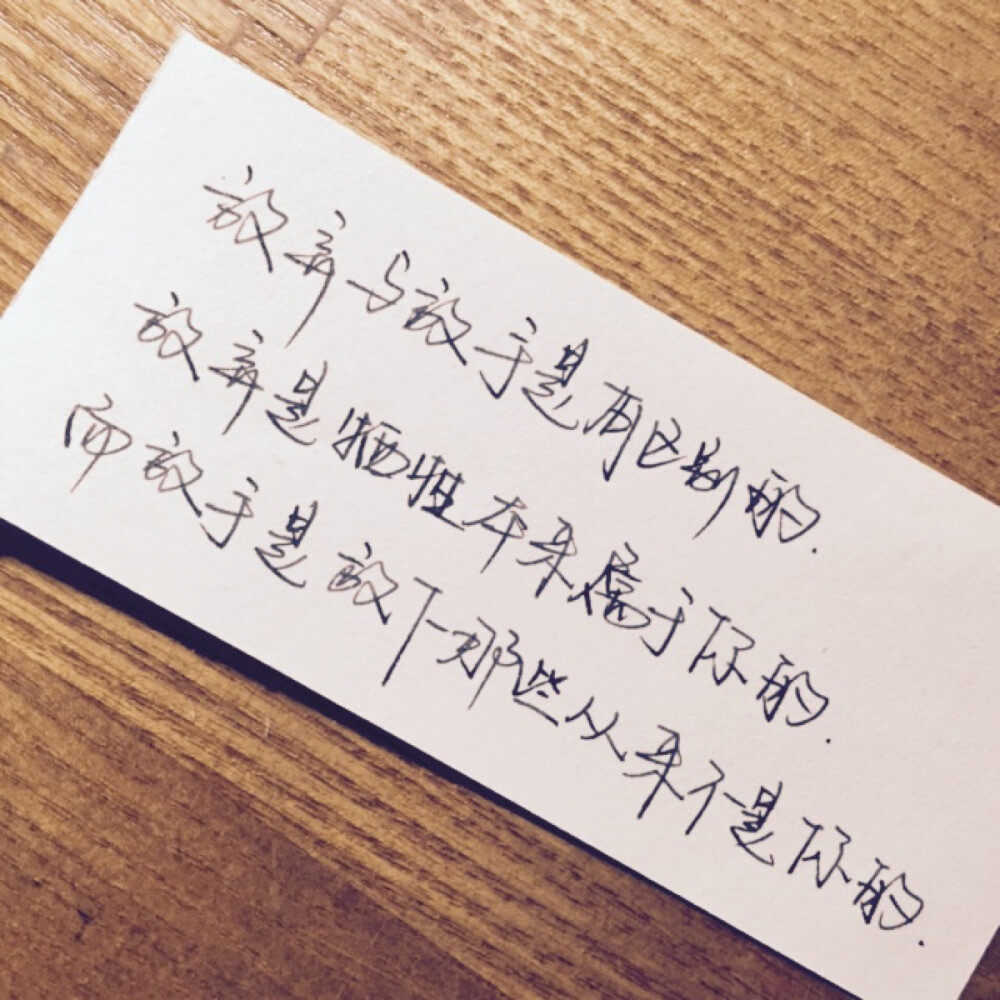 放弃与放手是有区别的.
放弃是牺牲本来属于你的.
而放手是放下那些从来不是你的.